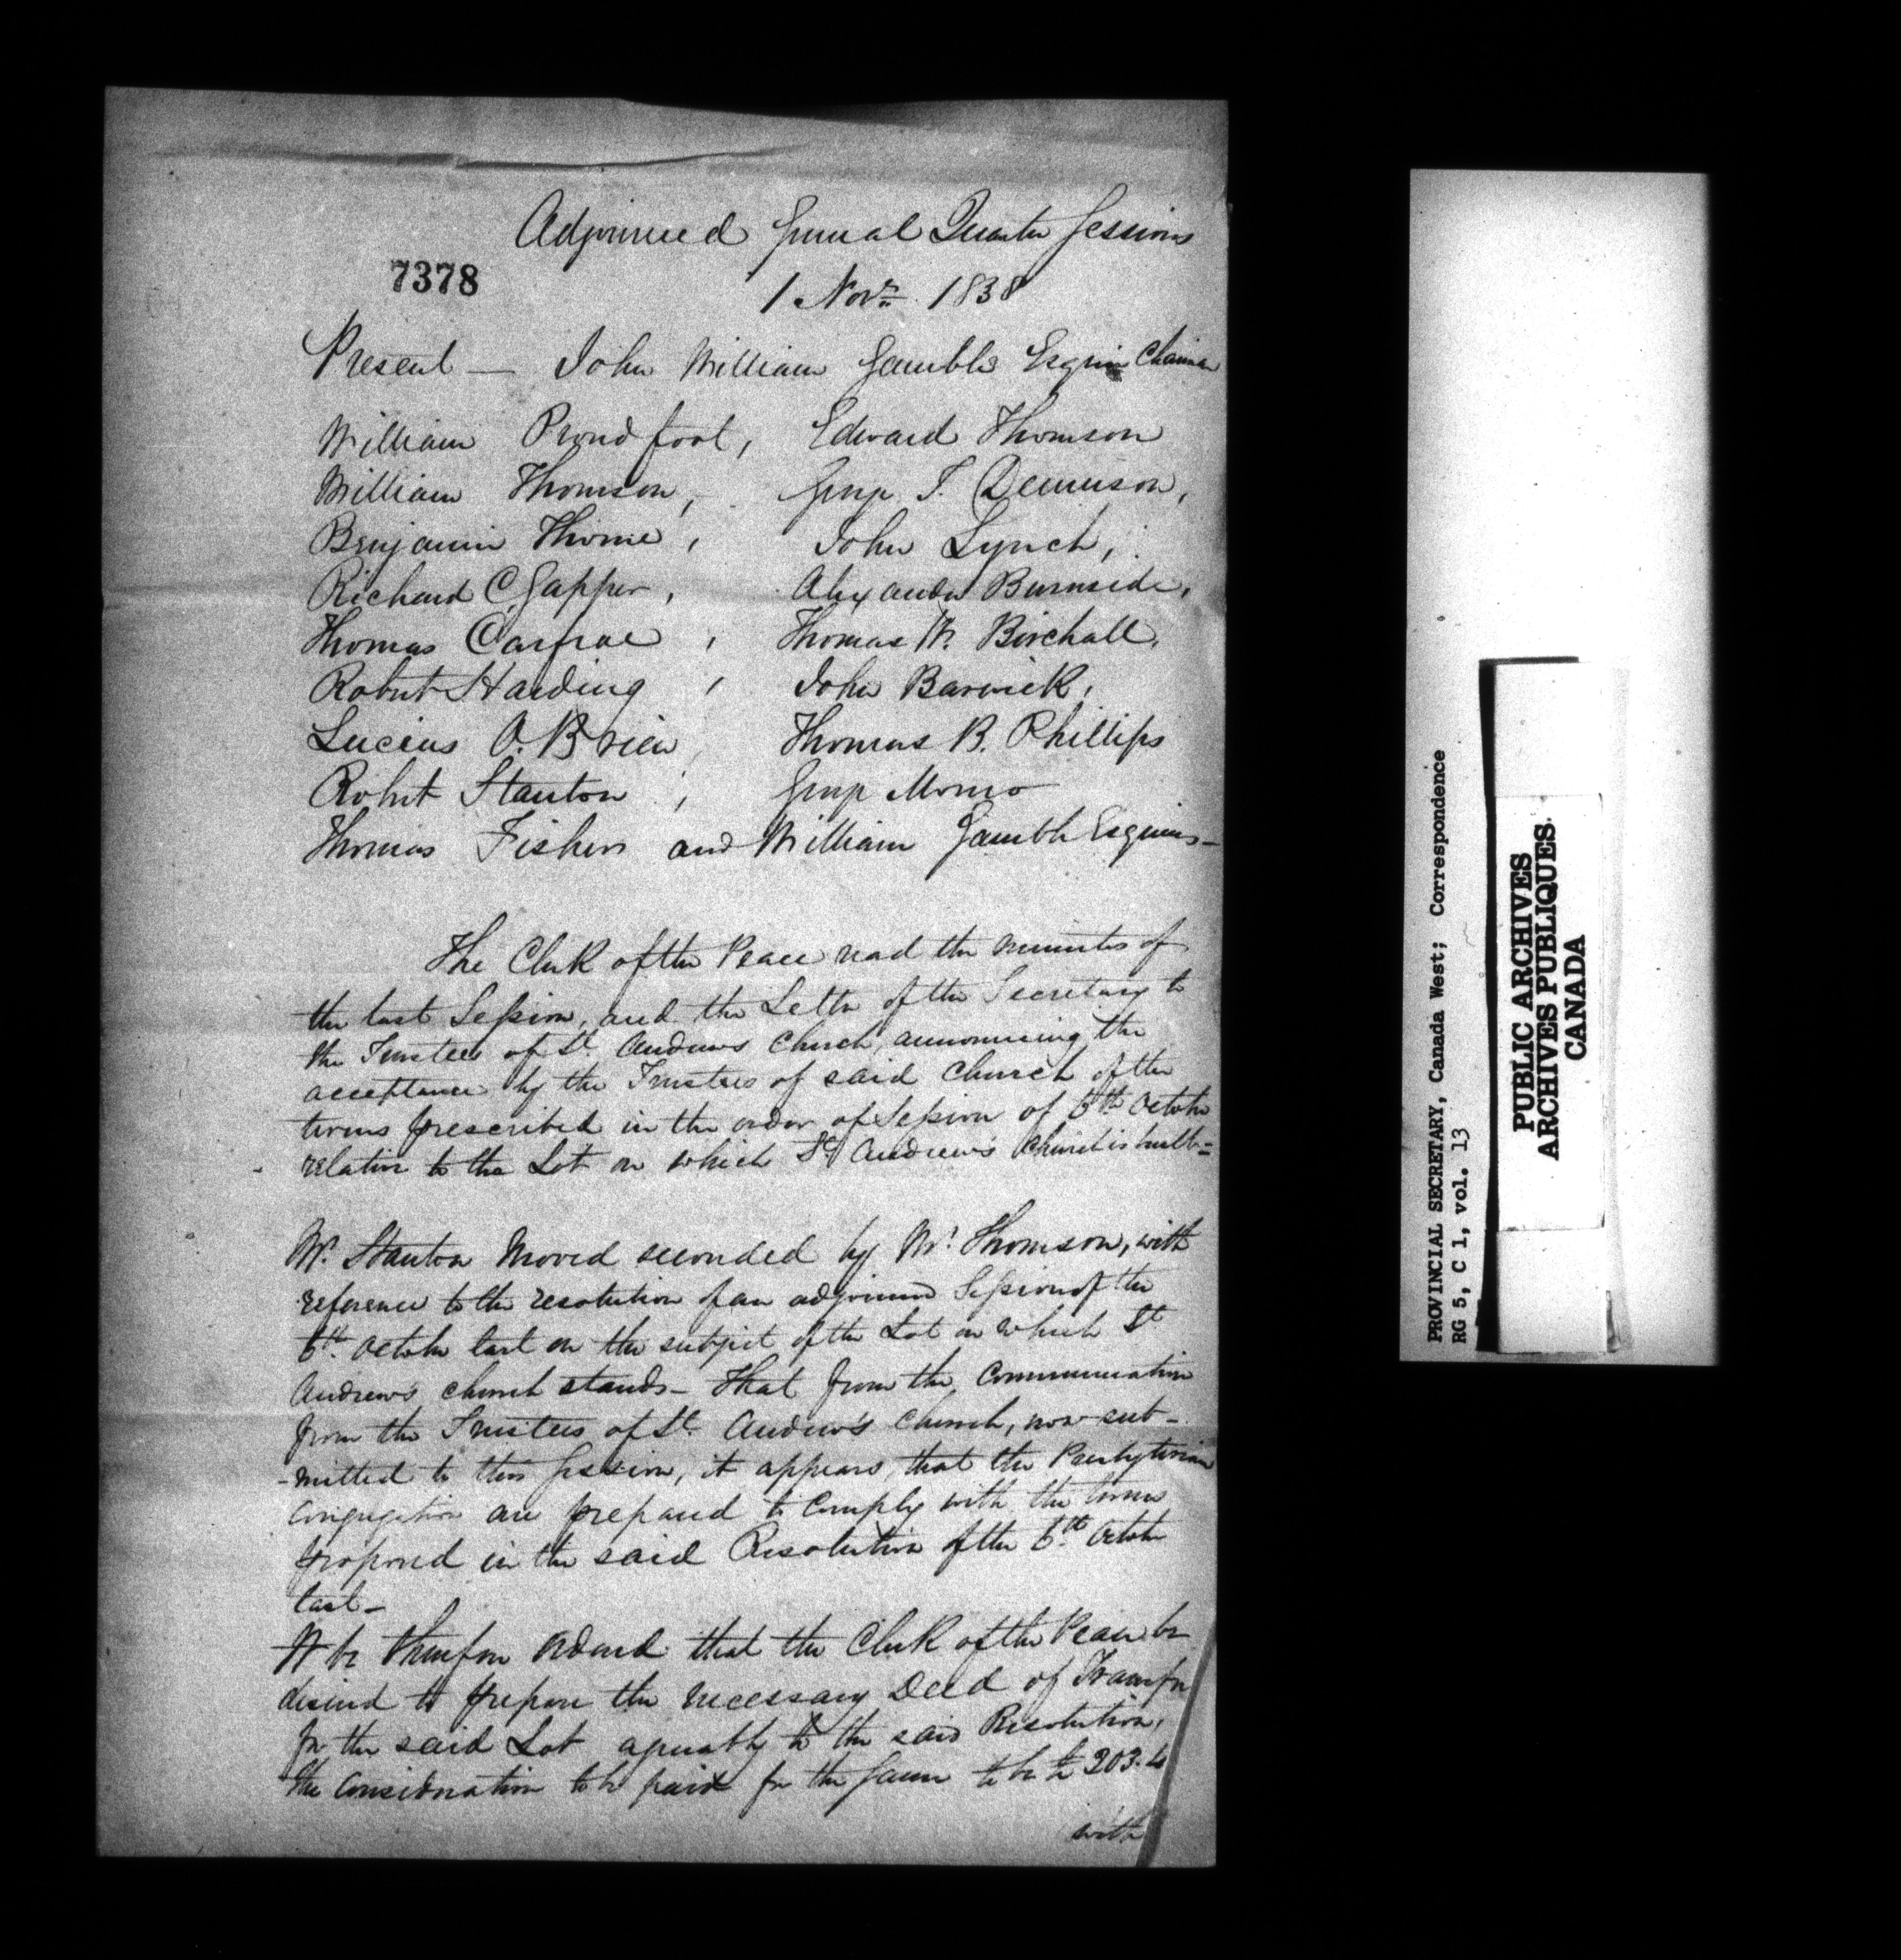 Adjourned General Quarter Sessions
7378
1 Novr. 1838
Present — John William Gamble Esquire Chairman
William Proudfoot, Edward Thomson
William Thomson, George T. Dennison,
Benjamin Thorne, John Lynch,
Richard C. Gapper, Alexander Burnside,
Thomas Carfrae, Thomas W. Birchall,
Robert Harding, John Barwick,
Lucius O. Brien, Thomas B. Phillips
Robert Stanton, George Monro
Thomas Fisher and William Gamble Esquires—
The Clerk of the Peace read the minutes of
the last Session, and the Letter of the Secretary to
the Trustees of St. Andrews Church, announcing the
acceptance by the Trustees of said Church of the
terms prescribed in the order of Session of 6th October
relative to the Lot on which St Andrew's Church is built=
Mr. Stanton Moved seconded by Mr. Thomson, with
reference to the resolution of an adjourned Session of the
6th. October last on the subject of the Lot on which St
Andrew's church stands— That from the Communication
from the Trustees of St. Andrew's Church, now sub-
-mitted to this Session, it appears, that the Presbyterian
Congregation are prepared to Comply with the terms
proposed in the said Resolution of the 6th. October
last—
It be therefore ordered that the Clerk of the Peace be
desired to prepare the necessary Deed of Transfer
for the said Lot agreeably to the said Resolution,
the Consideration to be paid for the same to be £203.4
with
PROVINCIAL SECRETARY, Canada West; Correspondence
RG 5, C 1, vol. 13
PUBLIC ARCHIVES
ARCHIVES PUBLIQUES
CANADA